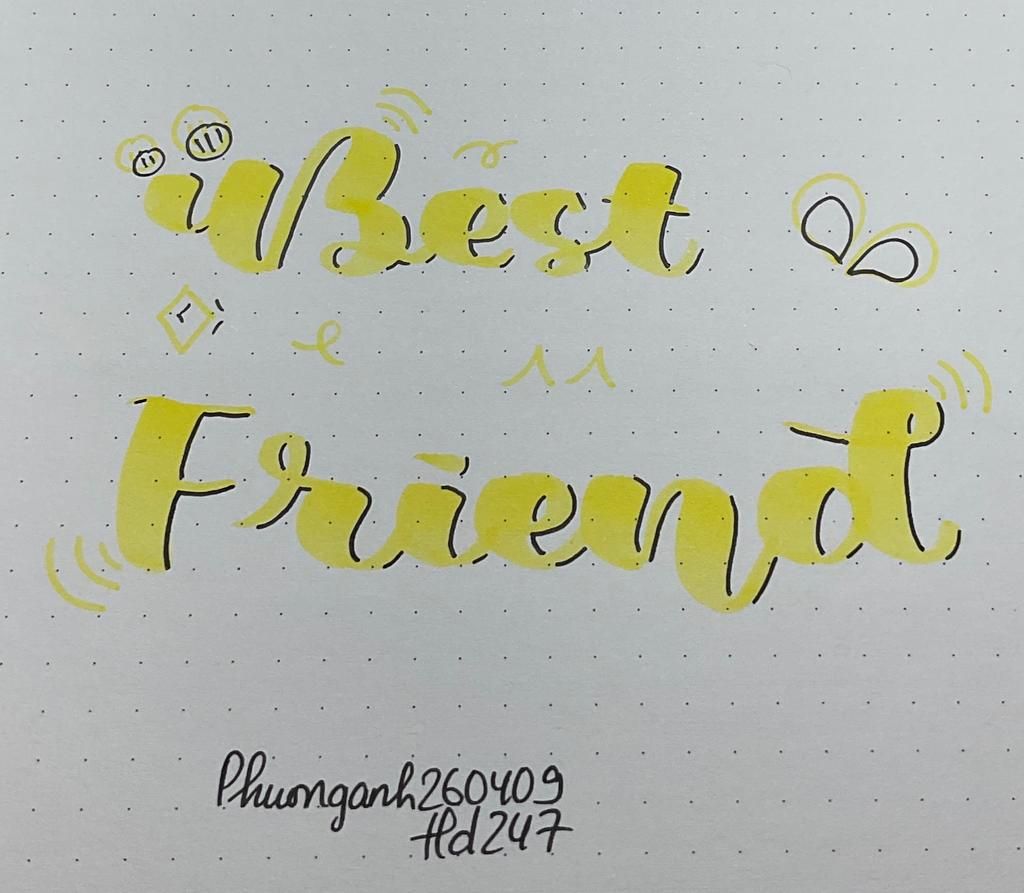 Best
Friend
Phuonganh260409
Hd247